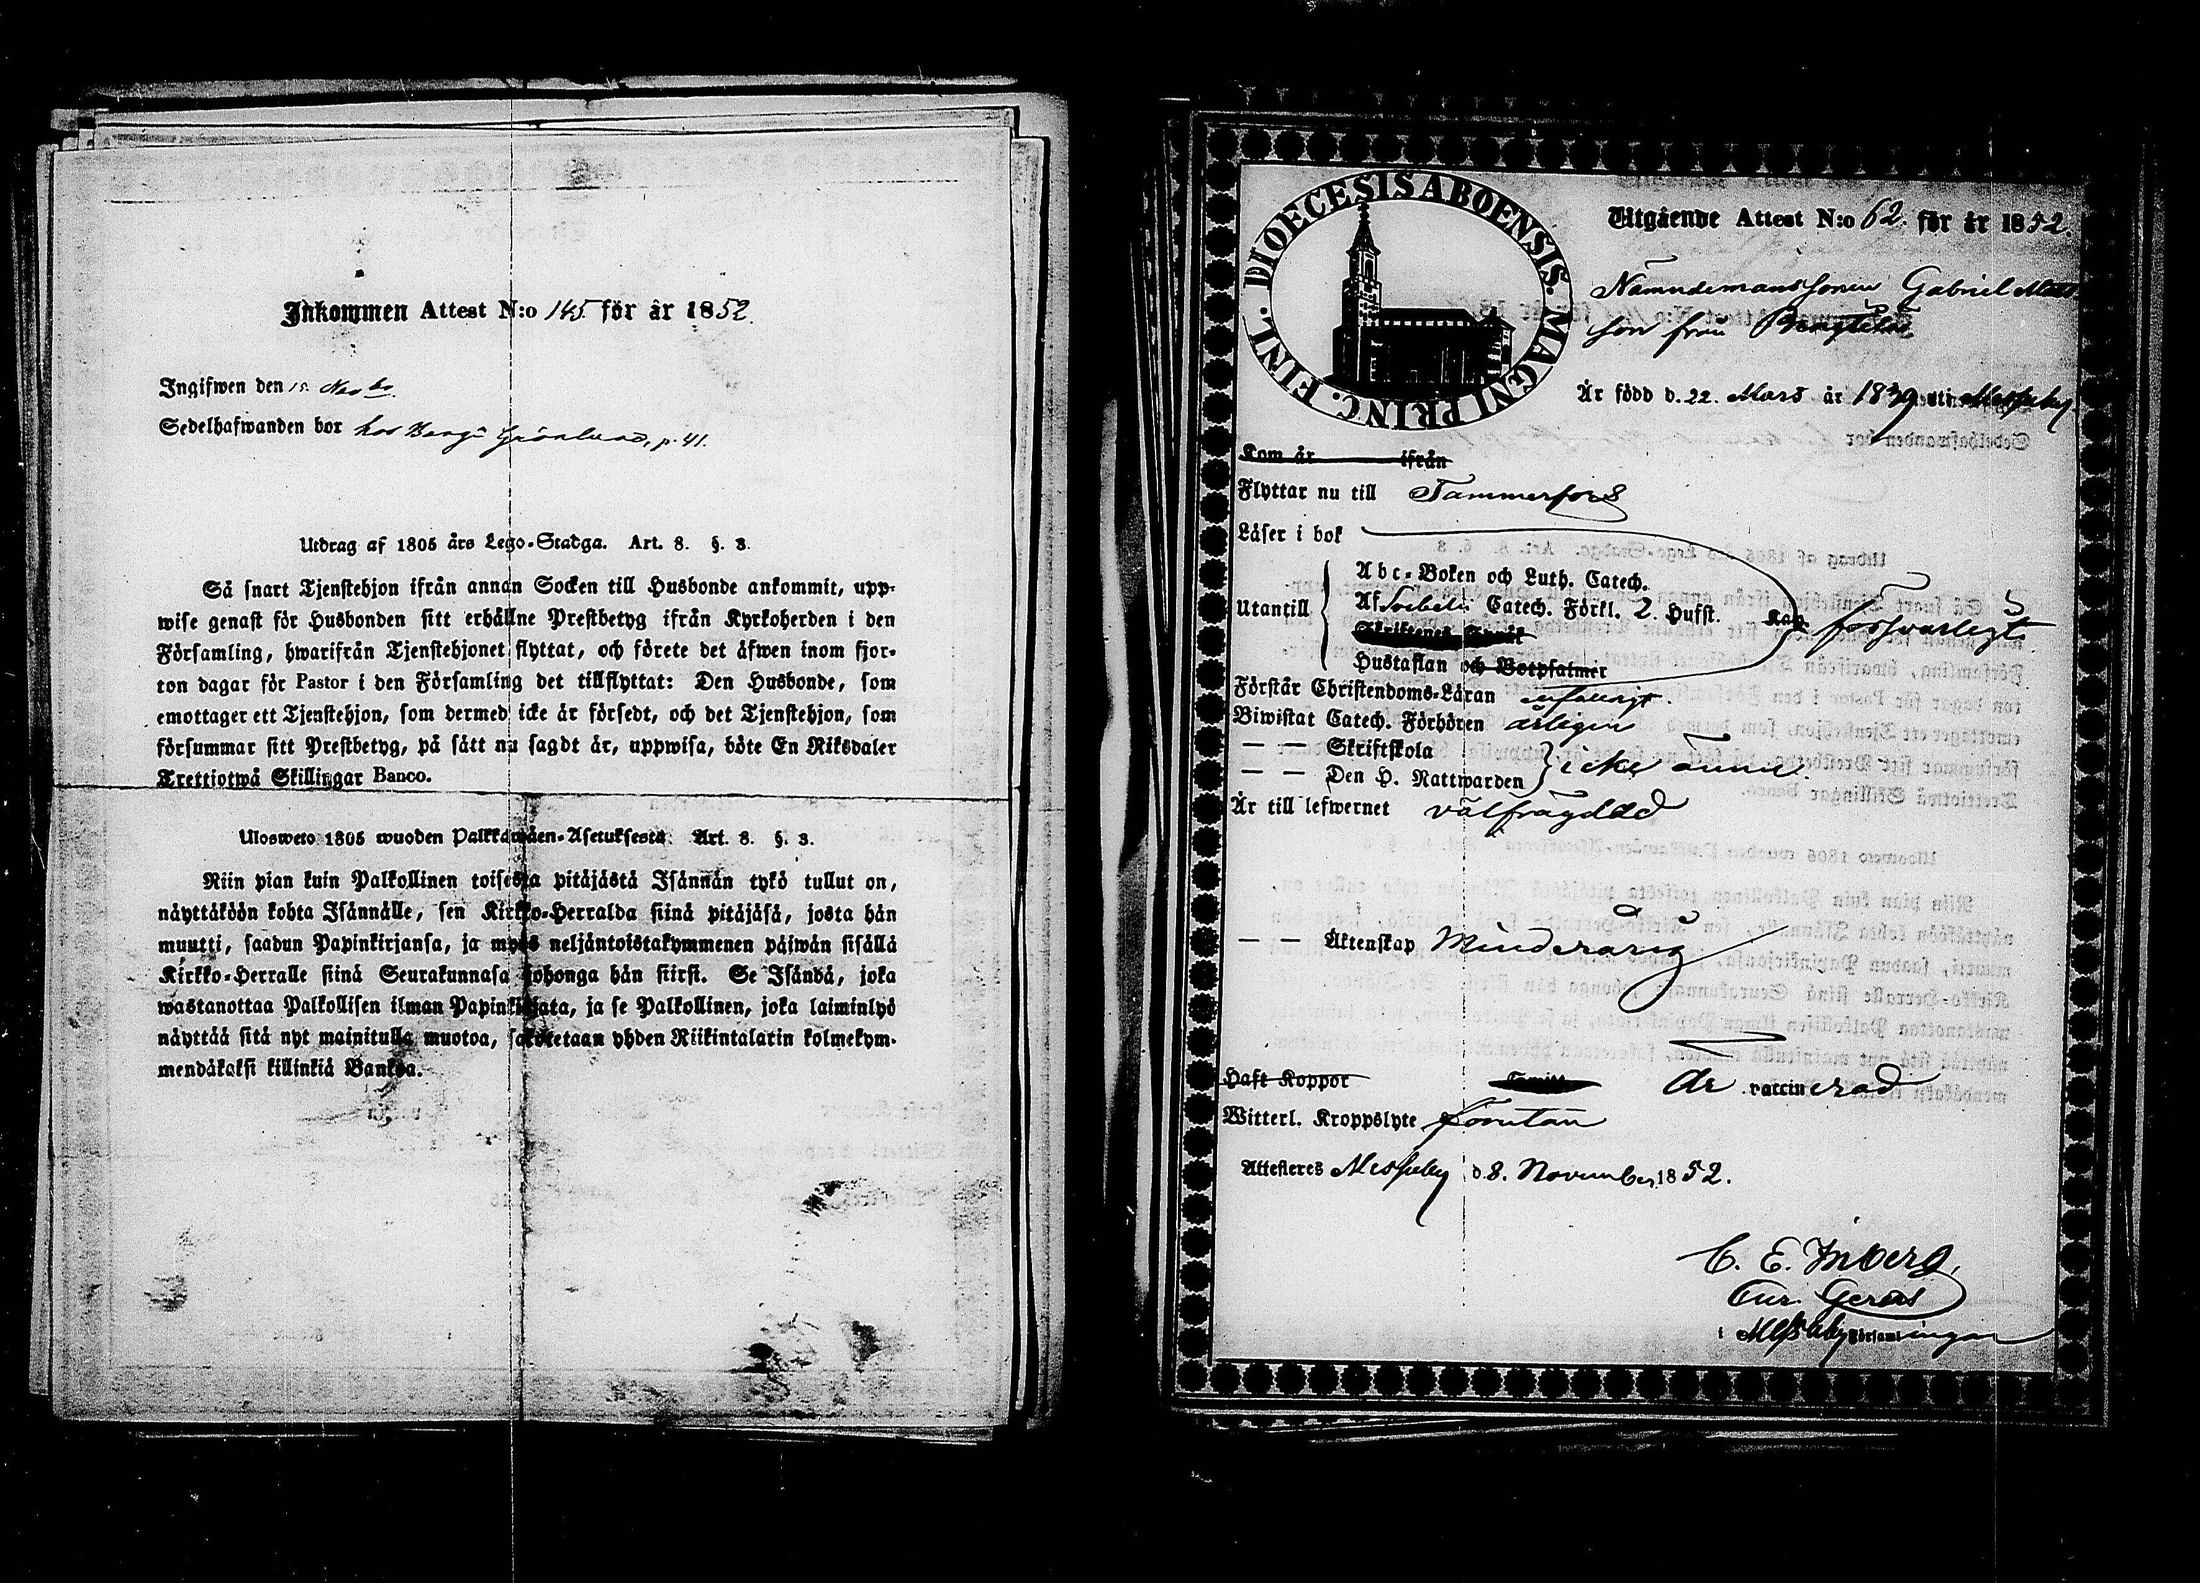 Inkommen Attest N:o 145. för år 1852.
Ingifwen den 15 Novbr.
Sedelhafwanden bor hos Grönlund, p. 41.
Utdrag af 1805 års Lego-Stadga. Art. 8. §. 3.
Så snart Tjenstehjon ifrån annan Socken till Husbonde ankommit, upp-
wise genast för Husbonden sitt erhållne Prestbetyg ifrån Kyrkoherden i den
Församling, hwarifrån Tjenstehjonet flyttat, och förete det äfwen inom fjor-
ton dagar för Pastor i den Församling det tillflyttat: Den Husbonde, som
emottager ett Tjenstehjon, som dermed icke är försedt, och det Tjenstehjon, som
försummar sitt Prestbetyg, på sätt nu sagdt är, uppwisa, böte En Riksdaler
Trettiotwå Skillingar Banco.
Ulosweto 1805 wuoden Palkkawäen-Asetuksesta. Art. 8. §. 3.
Niin pian kuin Palkollinen toisesta pitäjästä Isännän tykö tullut on,
näyttäköön kohta Isännälle, sen Kirkko-Herralda siinä pitäjäsä, josta hän
muutti, saadun Papinkirjansa, ja myös neljäntoistakymmenen päiwän sisällä
Kirkko-Herralle siinä Seurakunnasa johonga hän siirsi. Se Isändä, joka
wastanottaa Palkollisen ilman Papinkirjata, ja se Palkollinen, joka laiminlyö
näyttää sitä nyt mainitulla muotoa, sakotetaan yhden Riikintalarin kolmekym-
mendäkaksi killinkiä Bankoa.
DIOECESIS ABOENSIS. MAGNI PRINC. FINL.
Utgående Attest N:o 62. för år 1852.
Nämndemanssonen Gabriel Mats
son från
Är född d. 22. Mars år 1839 uti Messuby
Kom år ifrån
Flyttar nu till Tammerfors
Läser i bok
Utantill
Abc-Boken och Luth. Catech.
Af Svebelii Catech. Förkl. 2. Hufst.
försvarligt
Hustaflan och Botpsalmer
Förstår Christendoms-Läran enfaldigt.
Biwistat Catech. Förhören årligen
— — Skriftskola
— — Den H. Nattwarden
icke ännu.
Är till lefwernet välfrägdad
— — Äktenskap Minderårig
Haft Koppor
Är vaccinerad
Witterl. Kroppslyte förutan
Attesteres Messuby d. 8. November 1852.
C. E. Inberg,
Cur. Gerens
i Messuby Församlingar